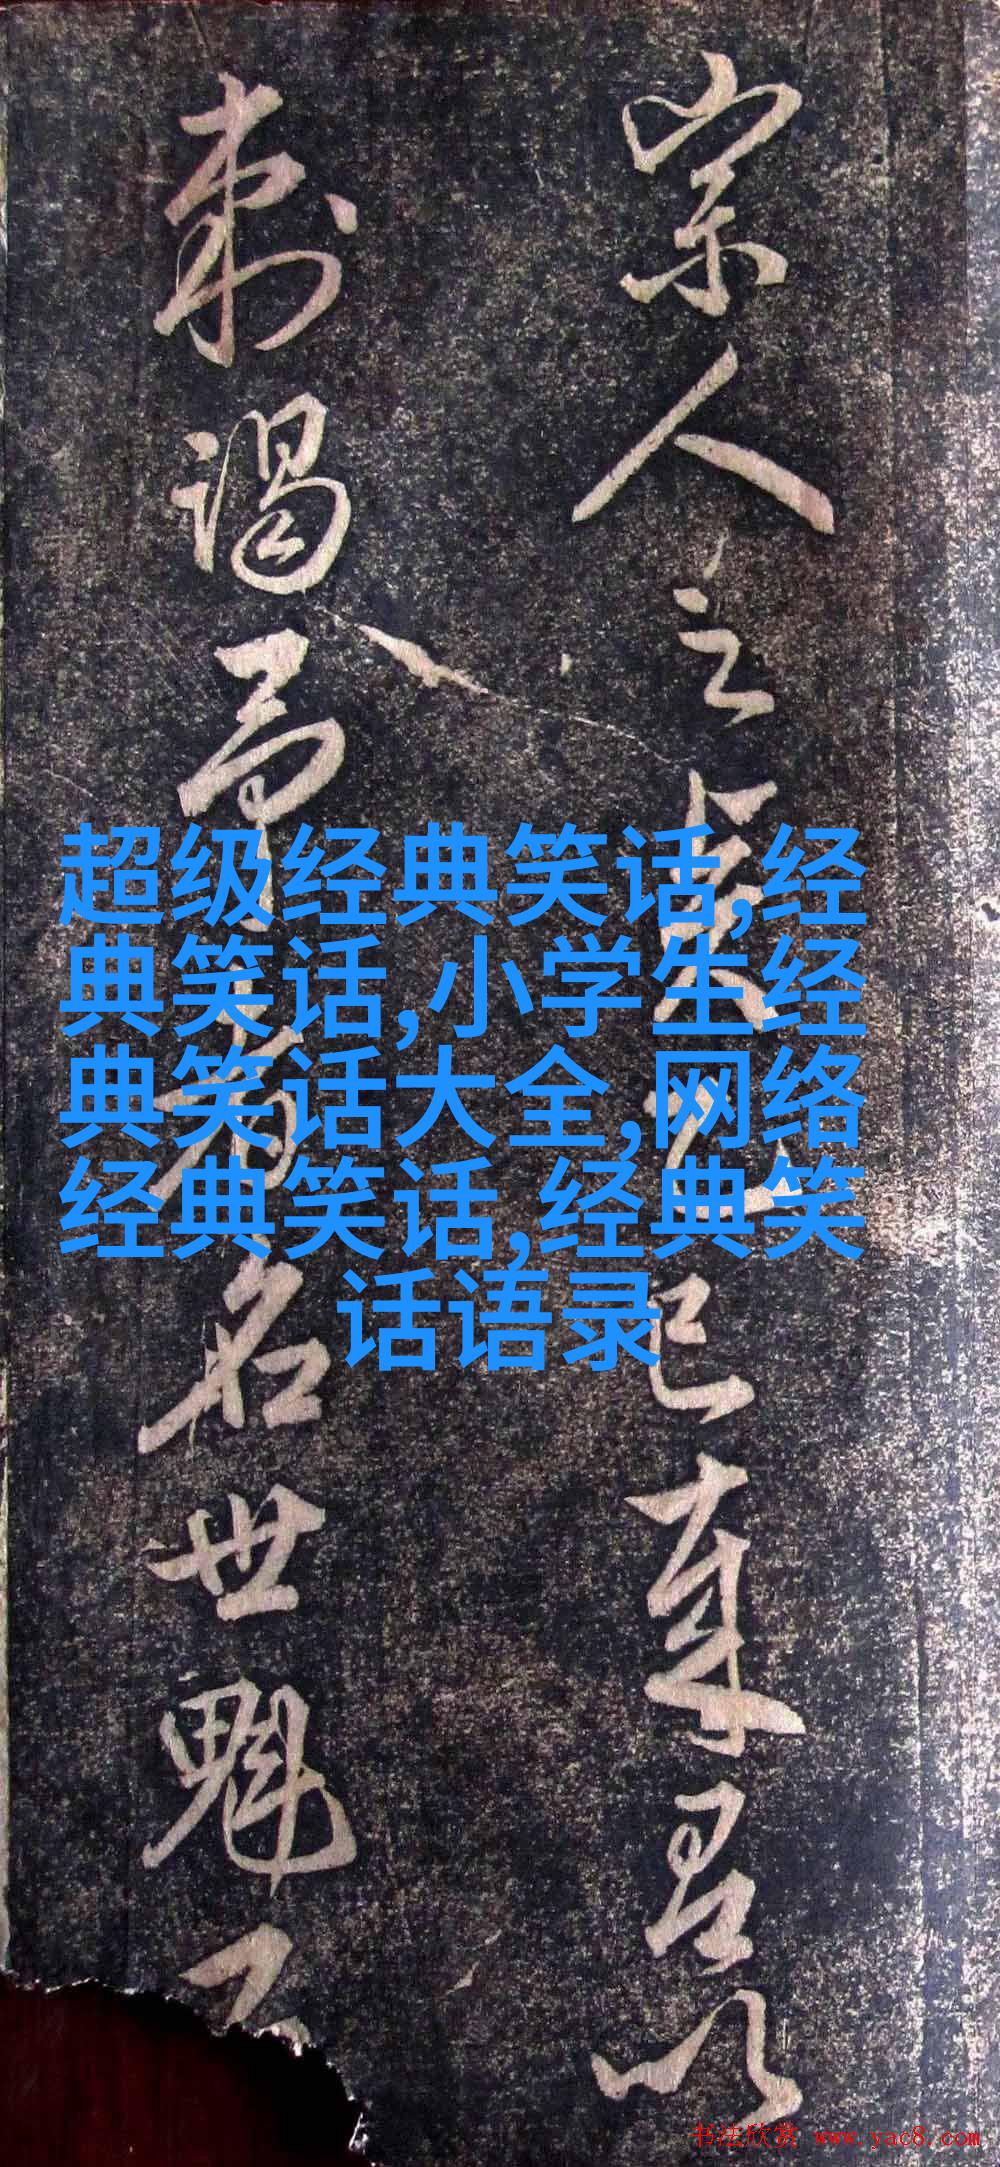 崇人之
已来吕以
刺谒
者名世魁
超级经典笑话,经
典笑话,小学生经
典笑话大全,网络
经典笑话,经典笑
话语录
书法欣赏 www.yac8.com